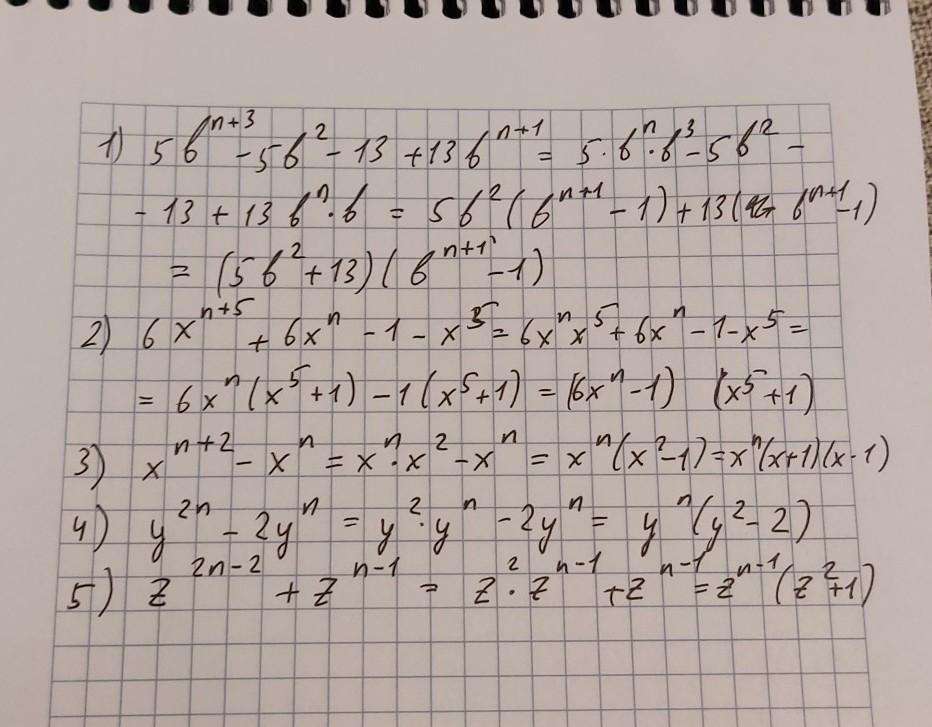 1) 5b^{n+3} - 5b^2 - 13 + 13b^{n+1} = 5·b^n·b^3 - 5b^2 -
- 13 + 13b^n·b = 5b^2(b^{n+1} - 1) + 13(b^{n+1} - 1)
= (5b^2 + 13)(b^{n+1} - 1)
2) 6x^{n+5} + 6x^n - 1 - x^5 = 6x^n x^5 + 6x^n - 1 - x^5 =
= 6x^n(x^5 + 1) - 1(x^5 + 1) = (6x^n - 1) (x^5 + 1)
3) x^{n+2} - x^n = x^n·x^2 - x^n = x^n(x^2 - 1) = x^n(x+1)(x-1)
4) y^{2n} - 2y^n = y^2·y^n - 2y^n = y^n(y^2 - 2)
5) z^{2n-2} + z^{n-1} = z^2·z^{n-1} + z^{n-1} = z^{n-1}(z^2 + 1)